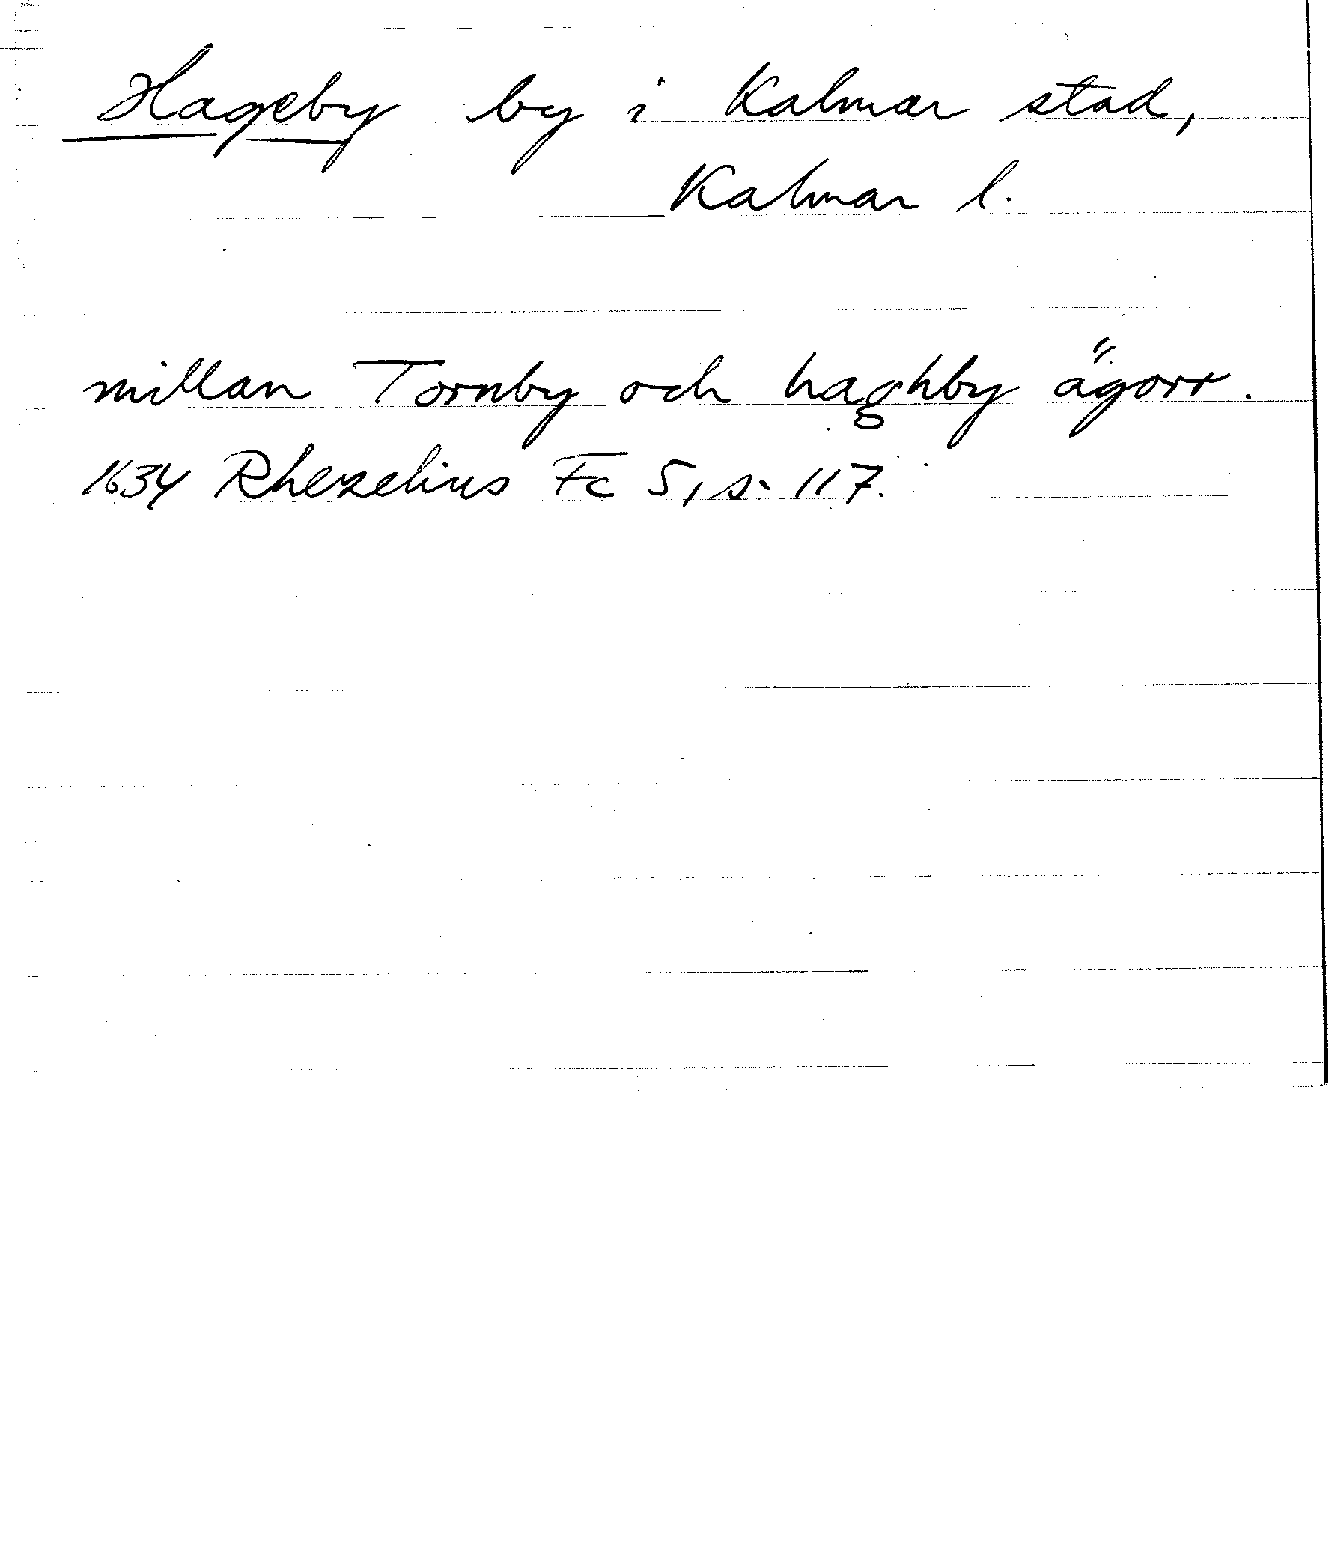 Hageby by i Kalmar stad,
Kalmar l.
millan Tornby och haghby ägorr.
1634 Rhezelius Fc 5, s. 117.